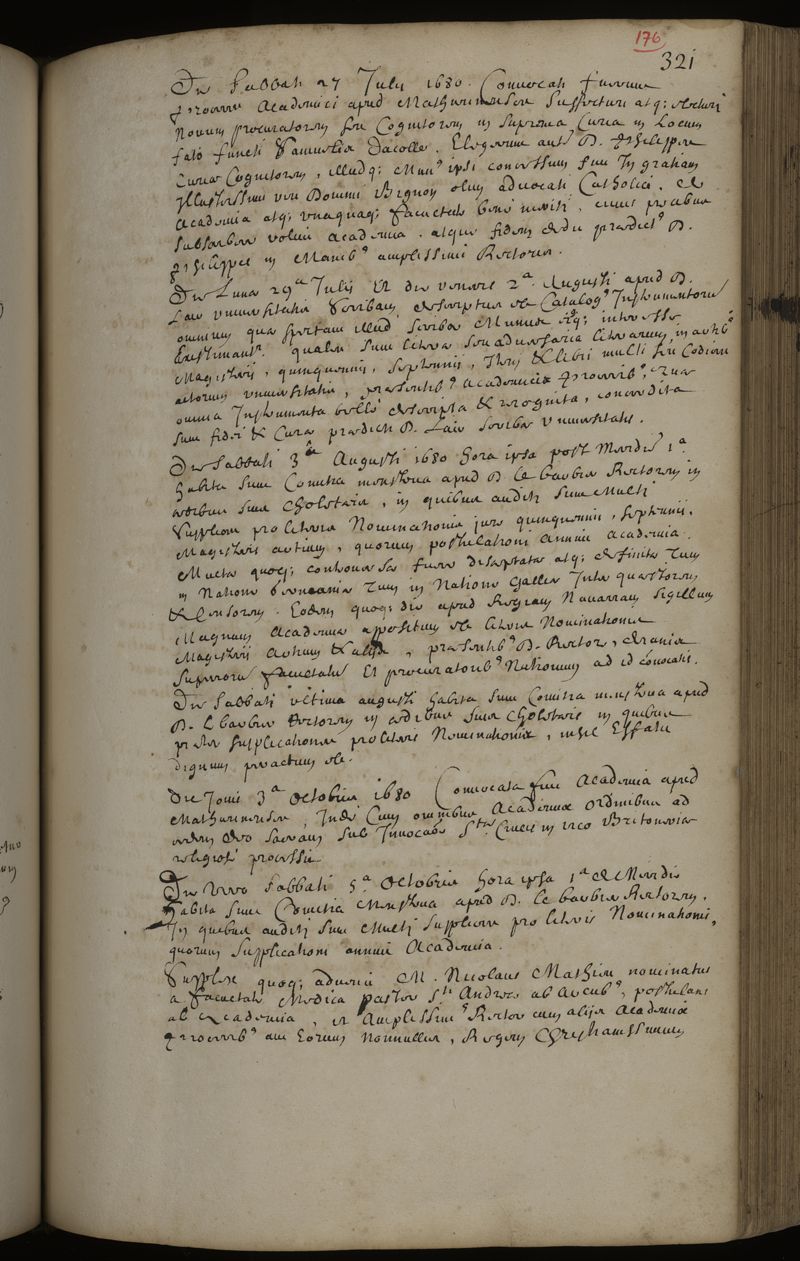 176
321
Die Sabbati 27 Julij 1680. Convocati fuerunt
Proceres Academici apud Mathurinenses suffecturi atq; electuri
Novum procuratorem seu Cognitorem in suprema Curia in Locum
fato functi Dacolle. Elegerunt autē D. Philippe
Curiæ Cognitorem, illudq; Munꝰ ipsi concessum fuit In gratiam
Illustrissimi viri Domini Bignon olim advocati Catholici, de
Academia atq; unaquaq; facultate bene meriti, cuius precibus
Academia, atque fidem dedit prædictꝰ D.
Philippe in Manibꝰ amplissimi Rectoris.
Die Lunæ 29ᵃ Julij Et die veneris 2ᵃ Augusti apud D.
Lair universitatis scribam, descriptus est Catalogꝰ Instrumentorum
omnium quæ spectant illud scribæ Munus
qualia sunt litteræ seu adversaria litterarum
Magisterij, quinquennij, septennij, & libri multi seu Codices
actorum universitatis, præsentibꝰ Academiæ Proceribꝰ. Quæ
omnia Instrumenta descripta & recognita, concredita
sunt fidei & Curæ prædicti D. Lair scribæ universitatis.
Die Sabbati 3ᵃ Augusti 1680 hora ipsa post Meridiē 1ᵃ
habita sunt Comitia menstrua apud D. le Barbier Rectorem in
ædibus suis Choletæis, in quibus auditi sunt Multi
supplices pro litteris Nominationis jure quinquennii, septennii,
Magisterii actium, quorum postulationi annuit Academia.
Multæ quoq; controversiæ fuere disceptatæ atq; definitæ Tum
in Natione Tum in Natione Galliæ Inter quæstorem
& Censorem. Eodem quoq; die apud Regiam Navarram sigillum
Magnum Academiæ appositum est litteris Nominationis
Magisterij actuum & alijs, præsentibꝰ D. Rectore, decanis
superiorum facultatum Et procuratoribꝰ Nationum ad id convocatis.
Die Sabbati ultima augusti habita sunt Comitia menstrua apud
D. le Barbier Rectorem in ædibus suis Choletæis in quibus
præter supplicationes pro litteris Nominationis, nihil Effatu
dignum peractum est.
Die Jovis 3ᵃ Octobris 1680 Convocata fuit Academia apud
Mathurinenses, Inde Cum omnibus Academiæ Ordinibus ad
ædem Deo sacram sub Invocaōe Sᵗæ Crucis in vico Britonneriæ
processit.
Die Vero Sabbati 5ᵃ Octobris hora ipsa 1ᵃ Meridiē
habita sunt Comitia Menstrua apud D. le Barbier Rectorem,
In quibus auditi sunt Multi supplices pro litteris Nominationis,
quorum supplicationi annuit Academia.
Supplex quoq; advenit M. Nicolaus Mathieu nominatus
a facultate Medica pastor Sᵗⁱ Andreæ ab Arcubꝰ, postulans
ab Academia, ut Amplissimꝰ Rector cum alijs Academiæ
Proceribꝰ aut Eorum Nonnullis, Regem Christianissimum